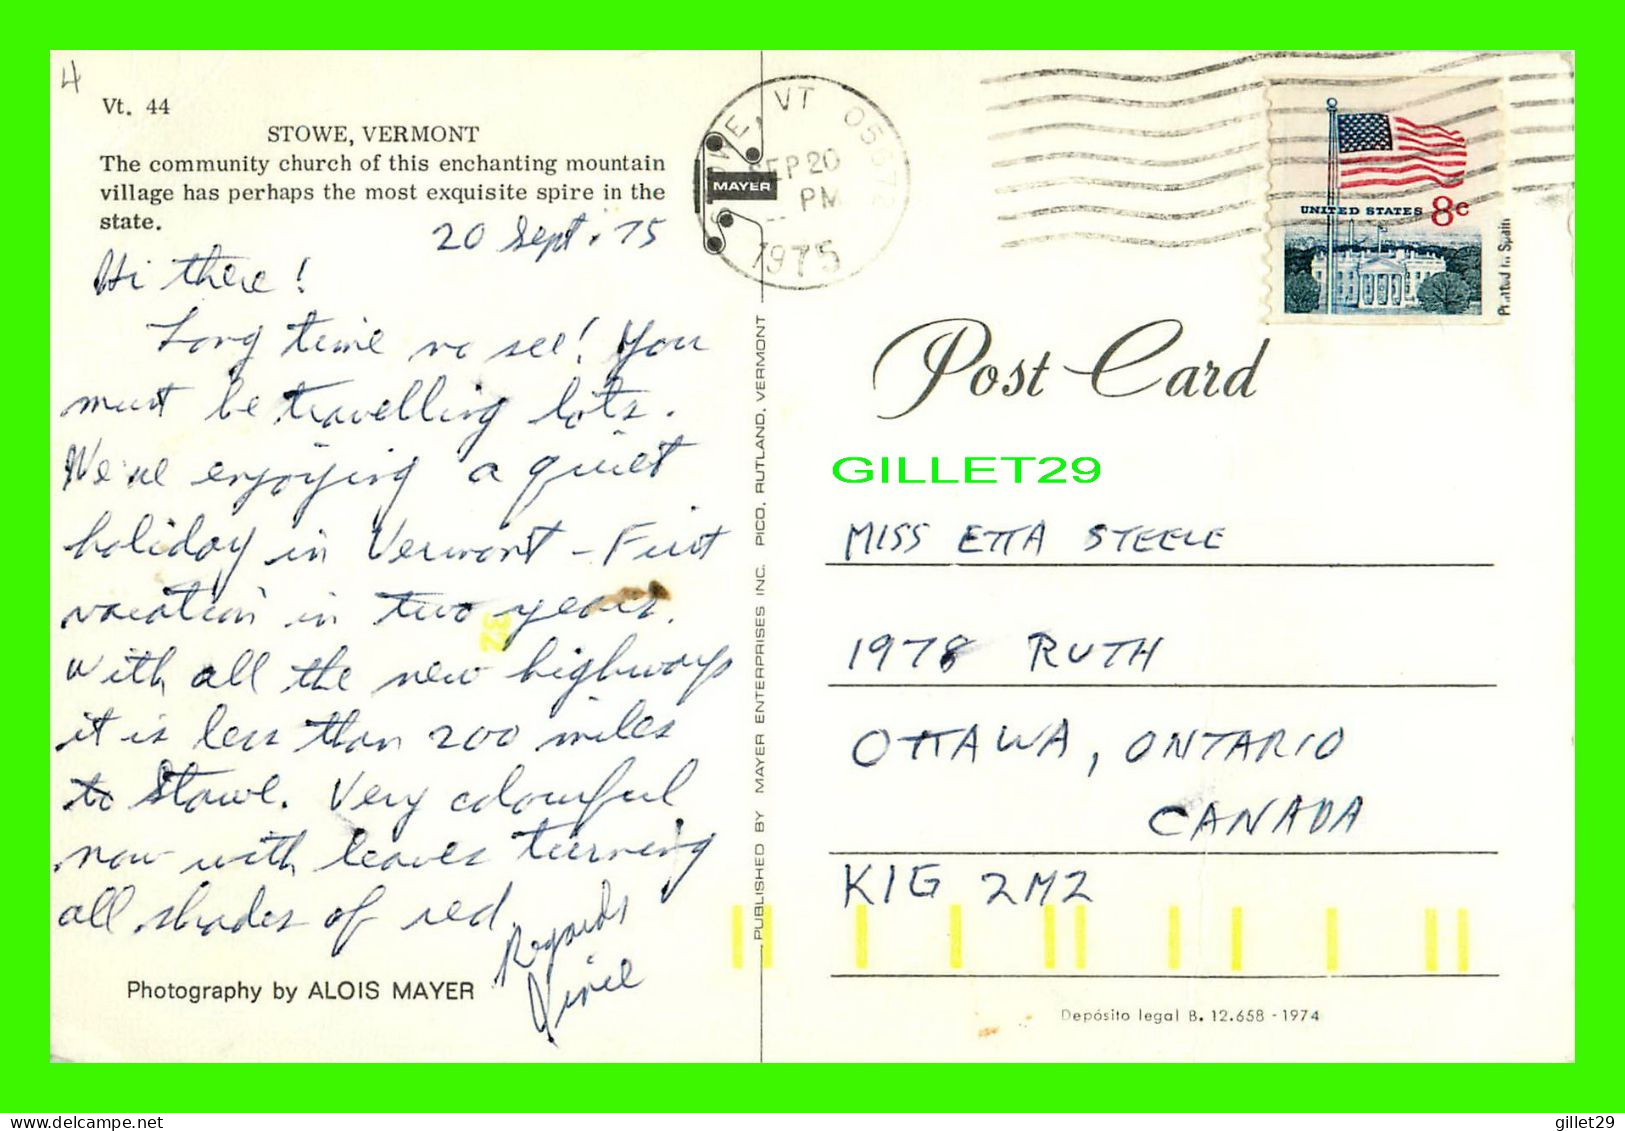 4
Vt. 44
STOWE, VERMONT
The community church of this enchanting mountain
village has perhaps the most exquisite spire in the
state.
20 Sept. 75
Hi there!
Long time no see! You
must be travelling lots.
We're enjoying a quiet
holiday in Vermont - First
vacation in two years.
With all the new highways
it is less than 200 miles
to Stowe. Very colourful
now with leaves turning
all shades of red
Regards
Photography by ALOIS MAYER
32
PUBLISHED BY MAYER ENTERPRISES INC. PICO, RUTLAND, VERMONT
MAYER
STOWE, VT 05672
SEP 20
PM
1975
UNITED STATES 8c
Printed in Spain
Post Card
GILLET29
MISS ETTA STEELE
1978 RUTH
OTTAWA, ONTARIO
CANADA
K1G 2M2
Depósito legal B. 12.658 - 1974
delcampe.net
gillet29